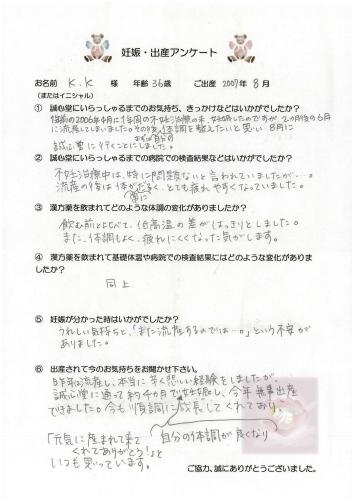 妊娠・出産アンケート
お名前 K.K 様 年齢 36歳 ご出産 2007年 8月
(またはイニシャル)
① 誠心堂にいらっしゃるまでのお気持ち、きっかけなどはいかがでしたか?
2006年4月に1年間の不妊治療の末、妊娠したのですが2ヵ月後の6月
に流産してしまいました。その後、体調を整えたいと思い 8月に
まずは自分の
誠心堂に行くことにしました。
② 誠心堂にいらっしゃるまでの病院での検査結果などはいかがでしたか?
不妊治療中は、特に問題ないと言われていましたが…。
流産の後は体がだるく、とても疲れやすくなっていました。
常に
③ 漢方薬を飲まれてどのような体調の変化がありましたか?
飲む前と比べて、低高温の差がはっきりとしました。
また、体調もよく、疲れにくくなった気がします。
④ 漢方薬を飲まれて基礎体温や病院での検査結果にはどのような変化がありましたか?
同上
⑤ 妊娠が分かった時はいかがでしたか?
うれしい気持ちと、「また流産するのでは…。」という不安が
ありました。
⑥ 出産されて今のお気持ちをお聞かせ下さい。
昨年は流産し、本当に辛く悲しい経験をしましたが
誠心堂に通って約4か月で妊娠し、今年無事出産
できました。今も順調に成長してくれており、
「元気に産まれて来て 自分の体調が良くなり
くれてありがとう!」と
いつも思っています。
ご協力、誠にありがとうございました。